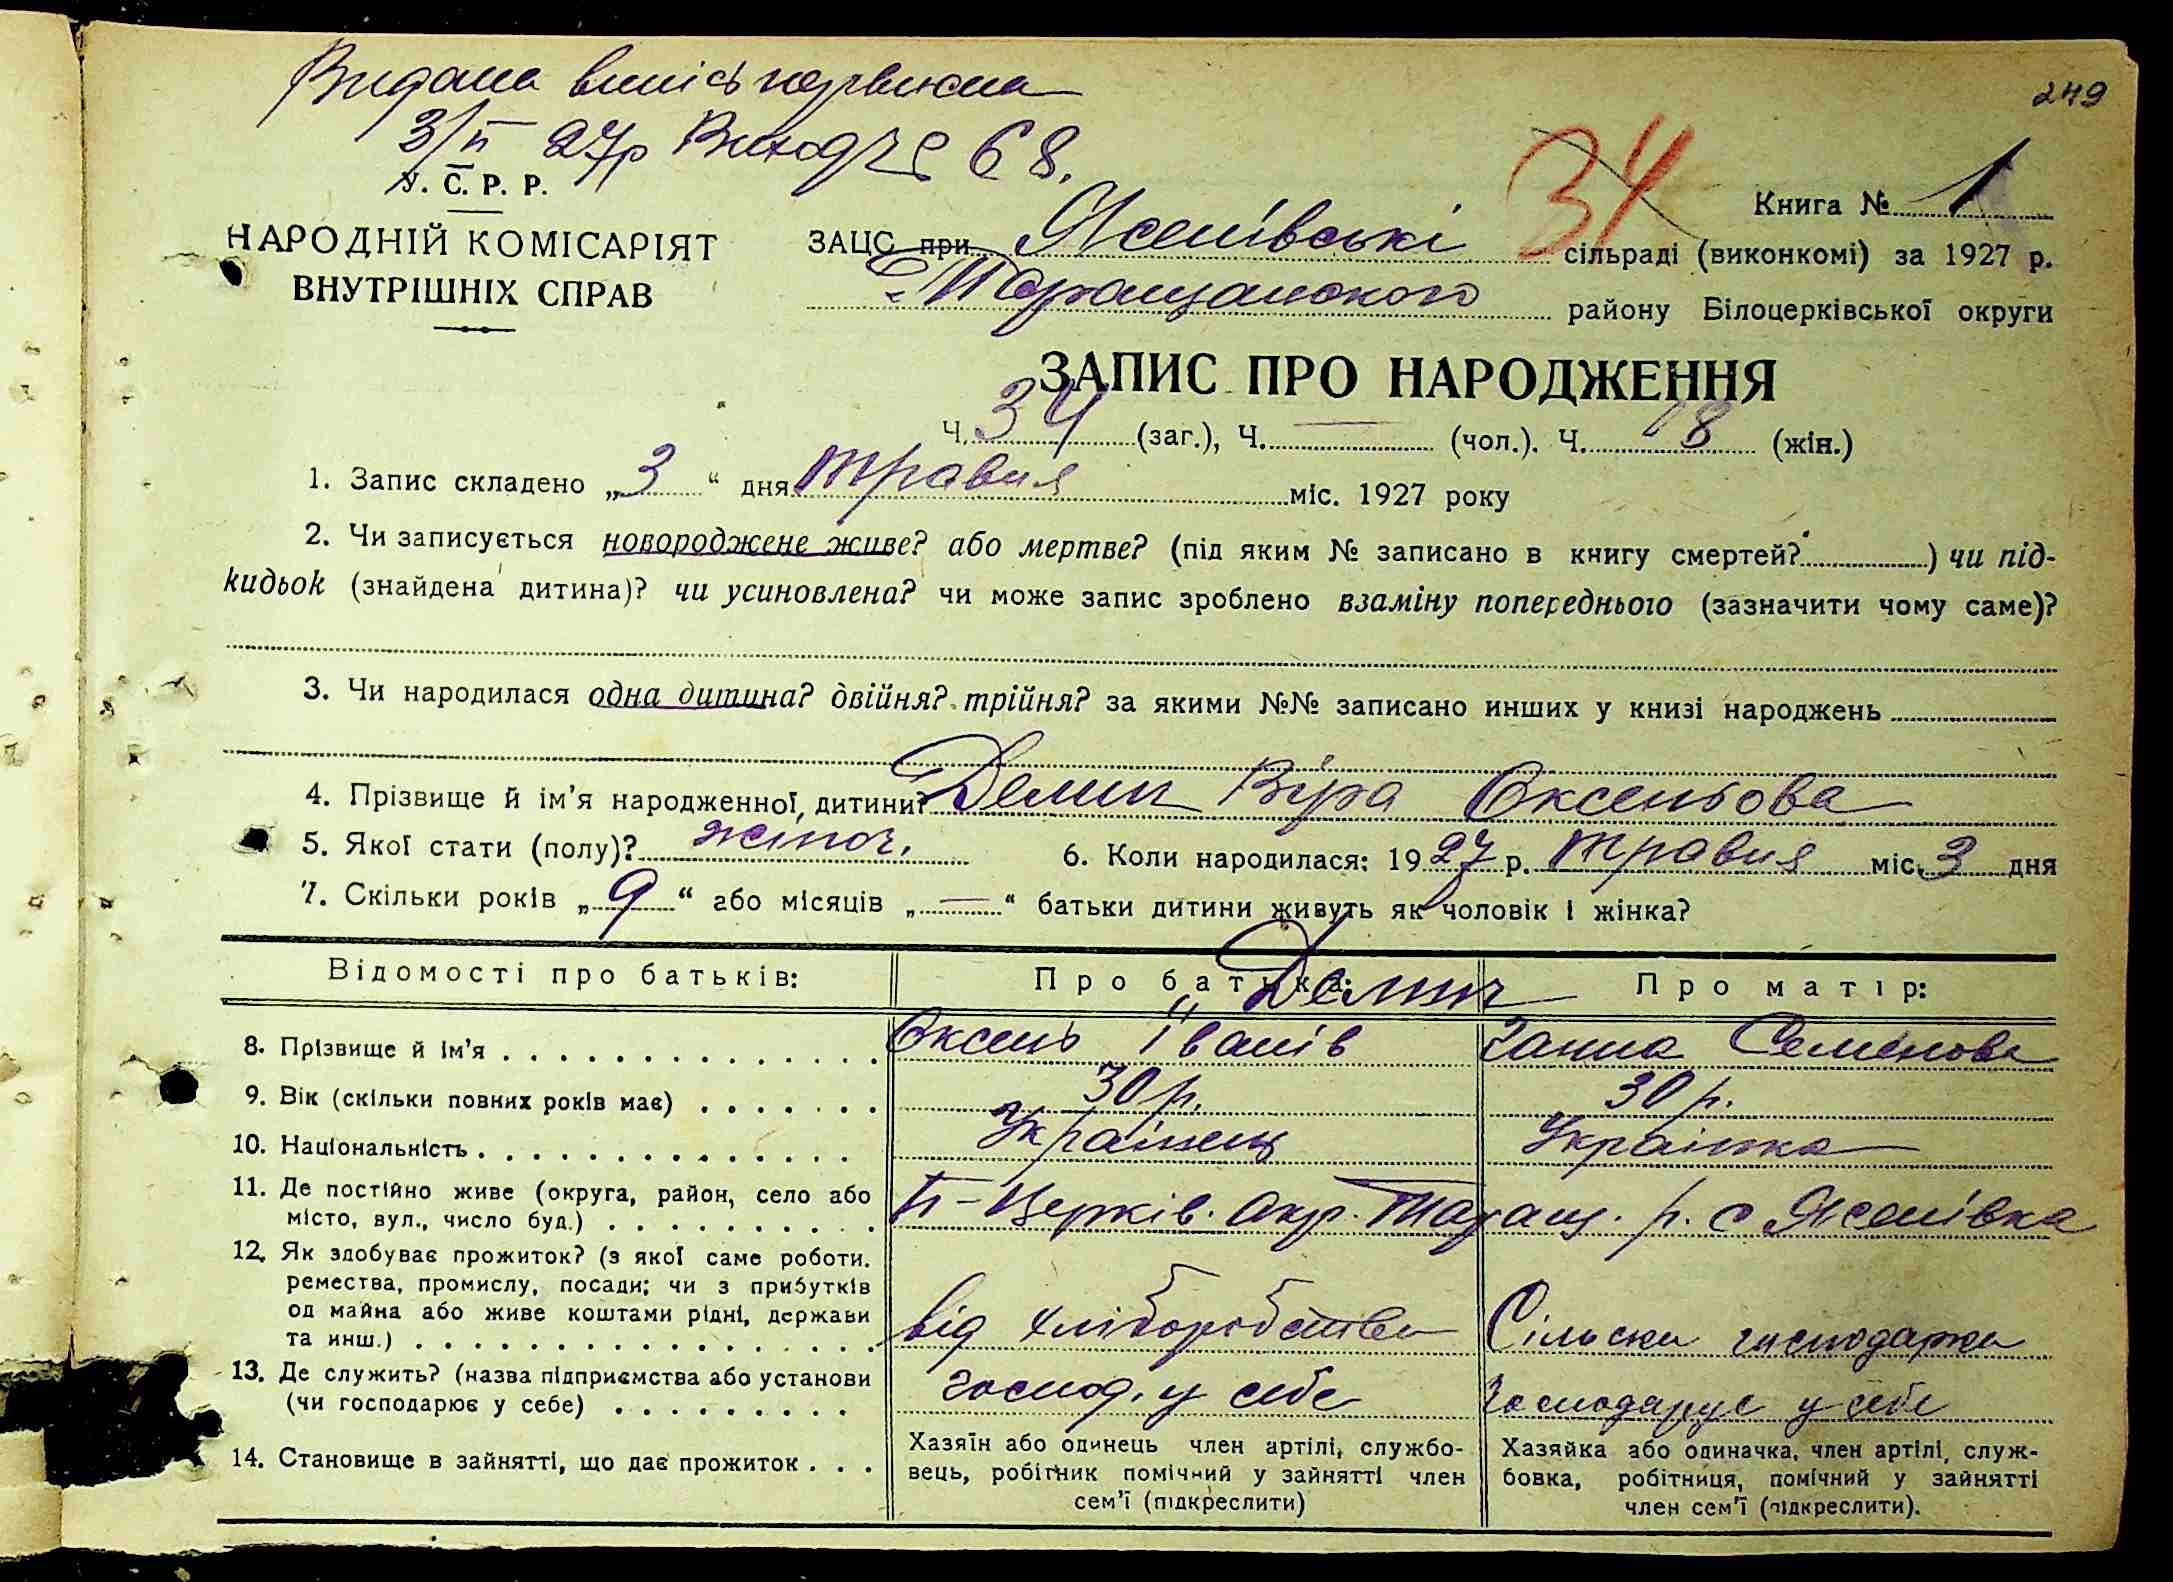 Видана випісь первисна
249
3/V 27р Виход че 68.
У. С. Р. Р.
34
Книга № 1
НАРОДНІЙ КОМІСАРІЯТ
ВНУТРІШНІХ СПРАВ
ЗАЦС при Ясенівські сільраді (виконкомі) за 1927 р.
Таращанского району Білоцерківської округи
ЗАПИС ПРО НАРОДЖЕННЯ
Ч. 34 (заг.), Ч. — (чол.). Ч. 18 (жін.)
1. Запис складено „3“ дня травня міс. 1927 року
2. Чи записується новороджене живе? або мертве? (під яким № записано в книгу смертей? ) чи під-
кидьок (знайдена дитина)? чи усиновлена? чи може запис зроблено взаміну попереднього (зазначити чому саме)?
3. Чи народилася одна дитина? двійня? трійня? за якими №№ записано инших у книзі народжень
4. Прізвище й ім'я народженної, дитини? Демич Віра Оксентова
5. Якої стати (полу)? жіноч. 6. Коли народилася: 1927 р. травня міс. 3 дня
7. Скільки років „9“ або місяців „—“ батьки дитини живуть як чоловік і жінка?
Відомості про батьків: Про батька: Про матір:
Демич
8. Прізвище й ім'я . . . Оксень Іванів Ганна Семенова
9. Вік (скільки повних років має) . . . 30 р. 30 р.
10. Національність . . . Українец Українка
11. Де постійно живе (округа, район, село або
місто, вул., число буд.) . . . Б-Церків. окр. Таращ. р. с Ясенівка
12. Як здобуває прожиток? (з якої саме роботи,
ремества, промислу, посади; чи з прибутків
од майна або живе коштами рідні, держави
та инш.) . . . від хліборобства Сільска господарка
13. Де служить? (назва підприємства або установи
(чи господарює у себе) . . . господ. у себе Господарує у себе
14. Становище в зайнятті, що дає прожиток . . .
Хазяїн або одинець член артілі, службо-
вець, робітник помічний у зайнятті член
сем'ї (підкреслити)
Хазяйка або одиначка, член артілі, служ-
бовка, робітниця, помічний у зайнятті
член сем'ї (підкреслити).